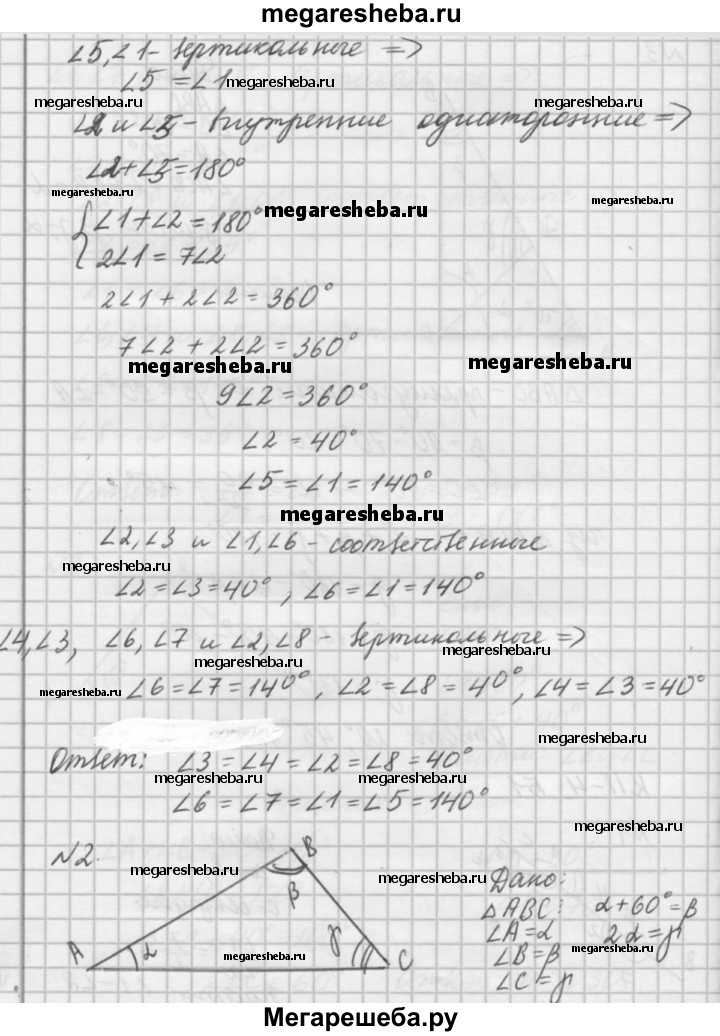 megaresheba.ru
∠5, ∠1 - вертикальные =>
∠5 = ∠1
megaresheba.ru
megaresheba.ru
megaresheba.ru
∠2 и ∠5 - внутренние односторонние =>
∠2 + ∠5 = 180°
megaresheba.ru
megaresheba.ru
∠1 + ∠2 = 180°
megaresheba.ru
2∠1 = 7∠2
2∠1 + 2∠2 = 360°
7∠2 + 2∠2 = 360°
megaresheba.ru
megaresheba.ru
9∠2 = 360°
∠2 = 40°
∠5 = ∠1 = 140°
megaresheba.ru
∠2, ∠3 и ∠1, ∠6 - соответственные
megaresheba.ru
∠2 = ∠3 = 40°, ∠6 = ∠1 = 140°
∠4, ∠3, ∠6, ∠7 и ∠2, ∠8 - вертикальные =>
megaresheba.ru
megaresheba.ru
megaresheba.ru
∠6 = ∠7 = 140°, ∠2 = ∠8 = 40°, ∠4 = ∠3 = 40°
megaresheba.ru
Ответ: ∠3 = ∠4 = ∠2 = ∠8 = 40°
megaresheba.ru
megaresheba.ru
∠6 = ∠7 = ∠1 = ∠5 = 140°
megaresheba.ru
№2.
B
megaresheba.ru
megaresheba.ru
β
A
α
γ
C
megaresheba.ru
Дано:
△ABC: α + 60° = β
∠A = α 2α = γ
megaresheba.ru
∠B = β
∠C = γ
Мегарешеба.ру